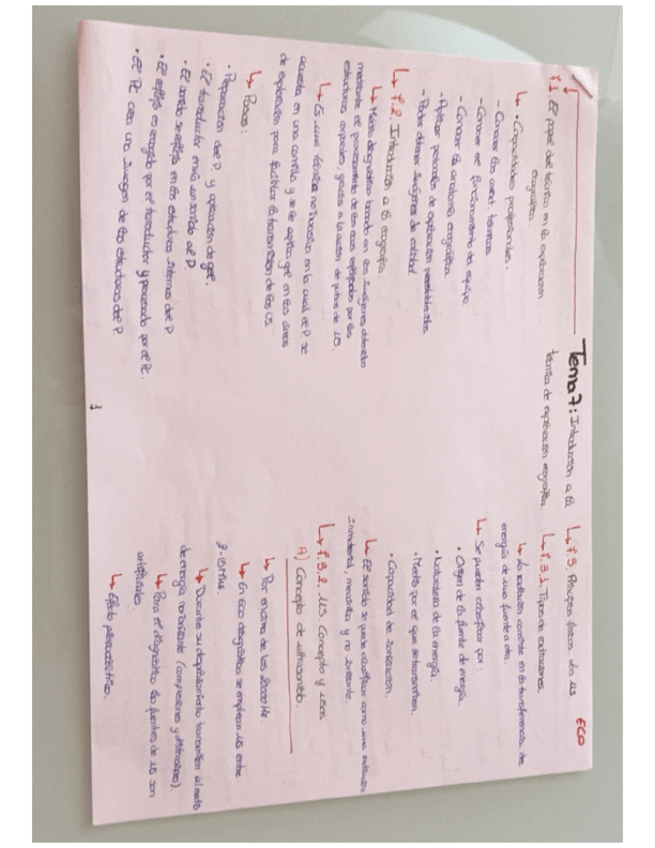 ECO
Tema 7: Introducción a la
técnica de exploración ecográfica
7.1. El papel del técnico en la exploración
ecográfica.
↳ • Capacidades profesionales.
- Conocer las caract. técnicas
- Conocer el funcionamiento del equipo
- Conocer la anatomía ecográfica.
- Aplicar protocolos de exploración
- Poder obtener imágenes de calidad.
↳ 7.2. Introducción a la ecografía.
↳ Método diagnóstico basado en las imágenes obtenidas
mediante el procesamiento de los ecos reflejados por las
estructuras corporales, gracias a la acción de pulsos de US.
↳ Es una técnica no invasiva en la cual el P. se
acuesta en una camilla y se le aplica gel en las áreas
de exploración para facilitar la transmisión de los US.
↳ Pasos:
• Preparación del P. y aplicación de gel.
• El transductor envía un sonido al P.
• El sonido se refleja en las estructuras internas del P.
• El reflejo es recogido por el transductor y procesado por el PC.
• El PC crea una imagen de las estructuras del P.
1
↳ 7.3. Principios físicos de los US
↳ 7.3.1. Tipos de radiaciones.
↳ La radiación consiste en la transferencia de
energía de una fuente a otra.
↳ Se pueden clasificar por:
• Origen de la fuente de energía.
• Naturaleza de la energía.
• Medio por el que se transmiten.
• Capacidad de ionización.
↳ El sonido se puede clasificar como una radiación
inmaterial, mecánica y no ionizante.
↳ 7.3.2. US. Concepto y usos.
A) Concepto de ultrasonido.
↳ Por encima de los 20000 Hz.
↳ En eco diagnóstica se emplean US entre
2-15 MHz.
↳ Durante su desplazamiento transmiten al medio
de energía no ionizante (compresiones y distensiones).
↳ Para el diagnóstico las fuentes de US son
artificiales.
↳ Efecto piezoeléctrico.